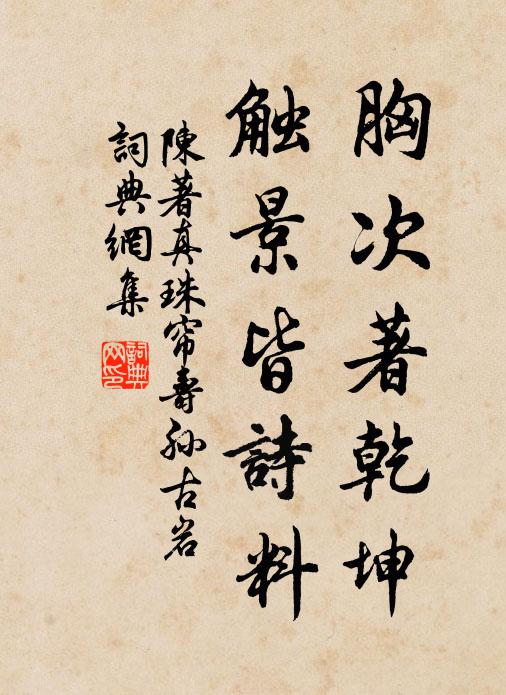 胸次著乾坤
触景皆詩料
陳著真珠帘壽孙古岩
詞典網集
詞典網印